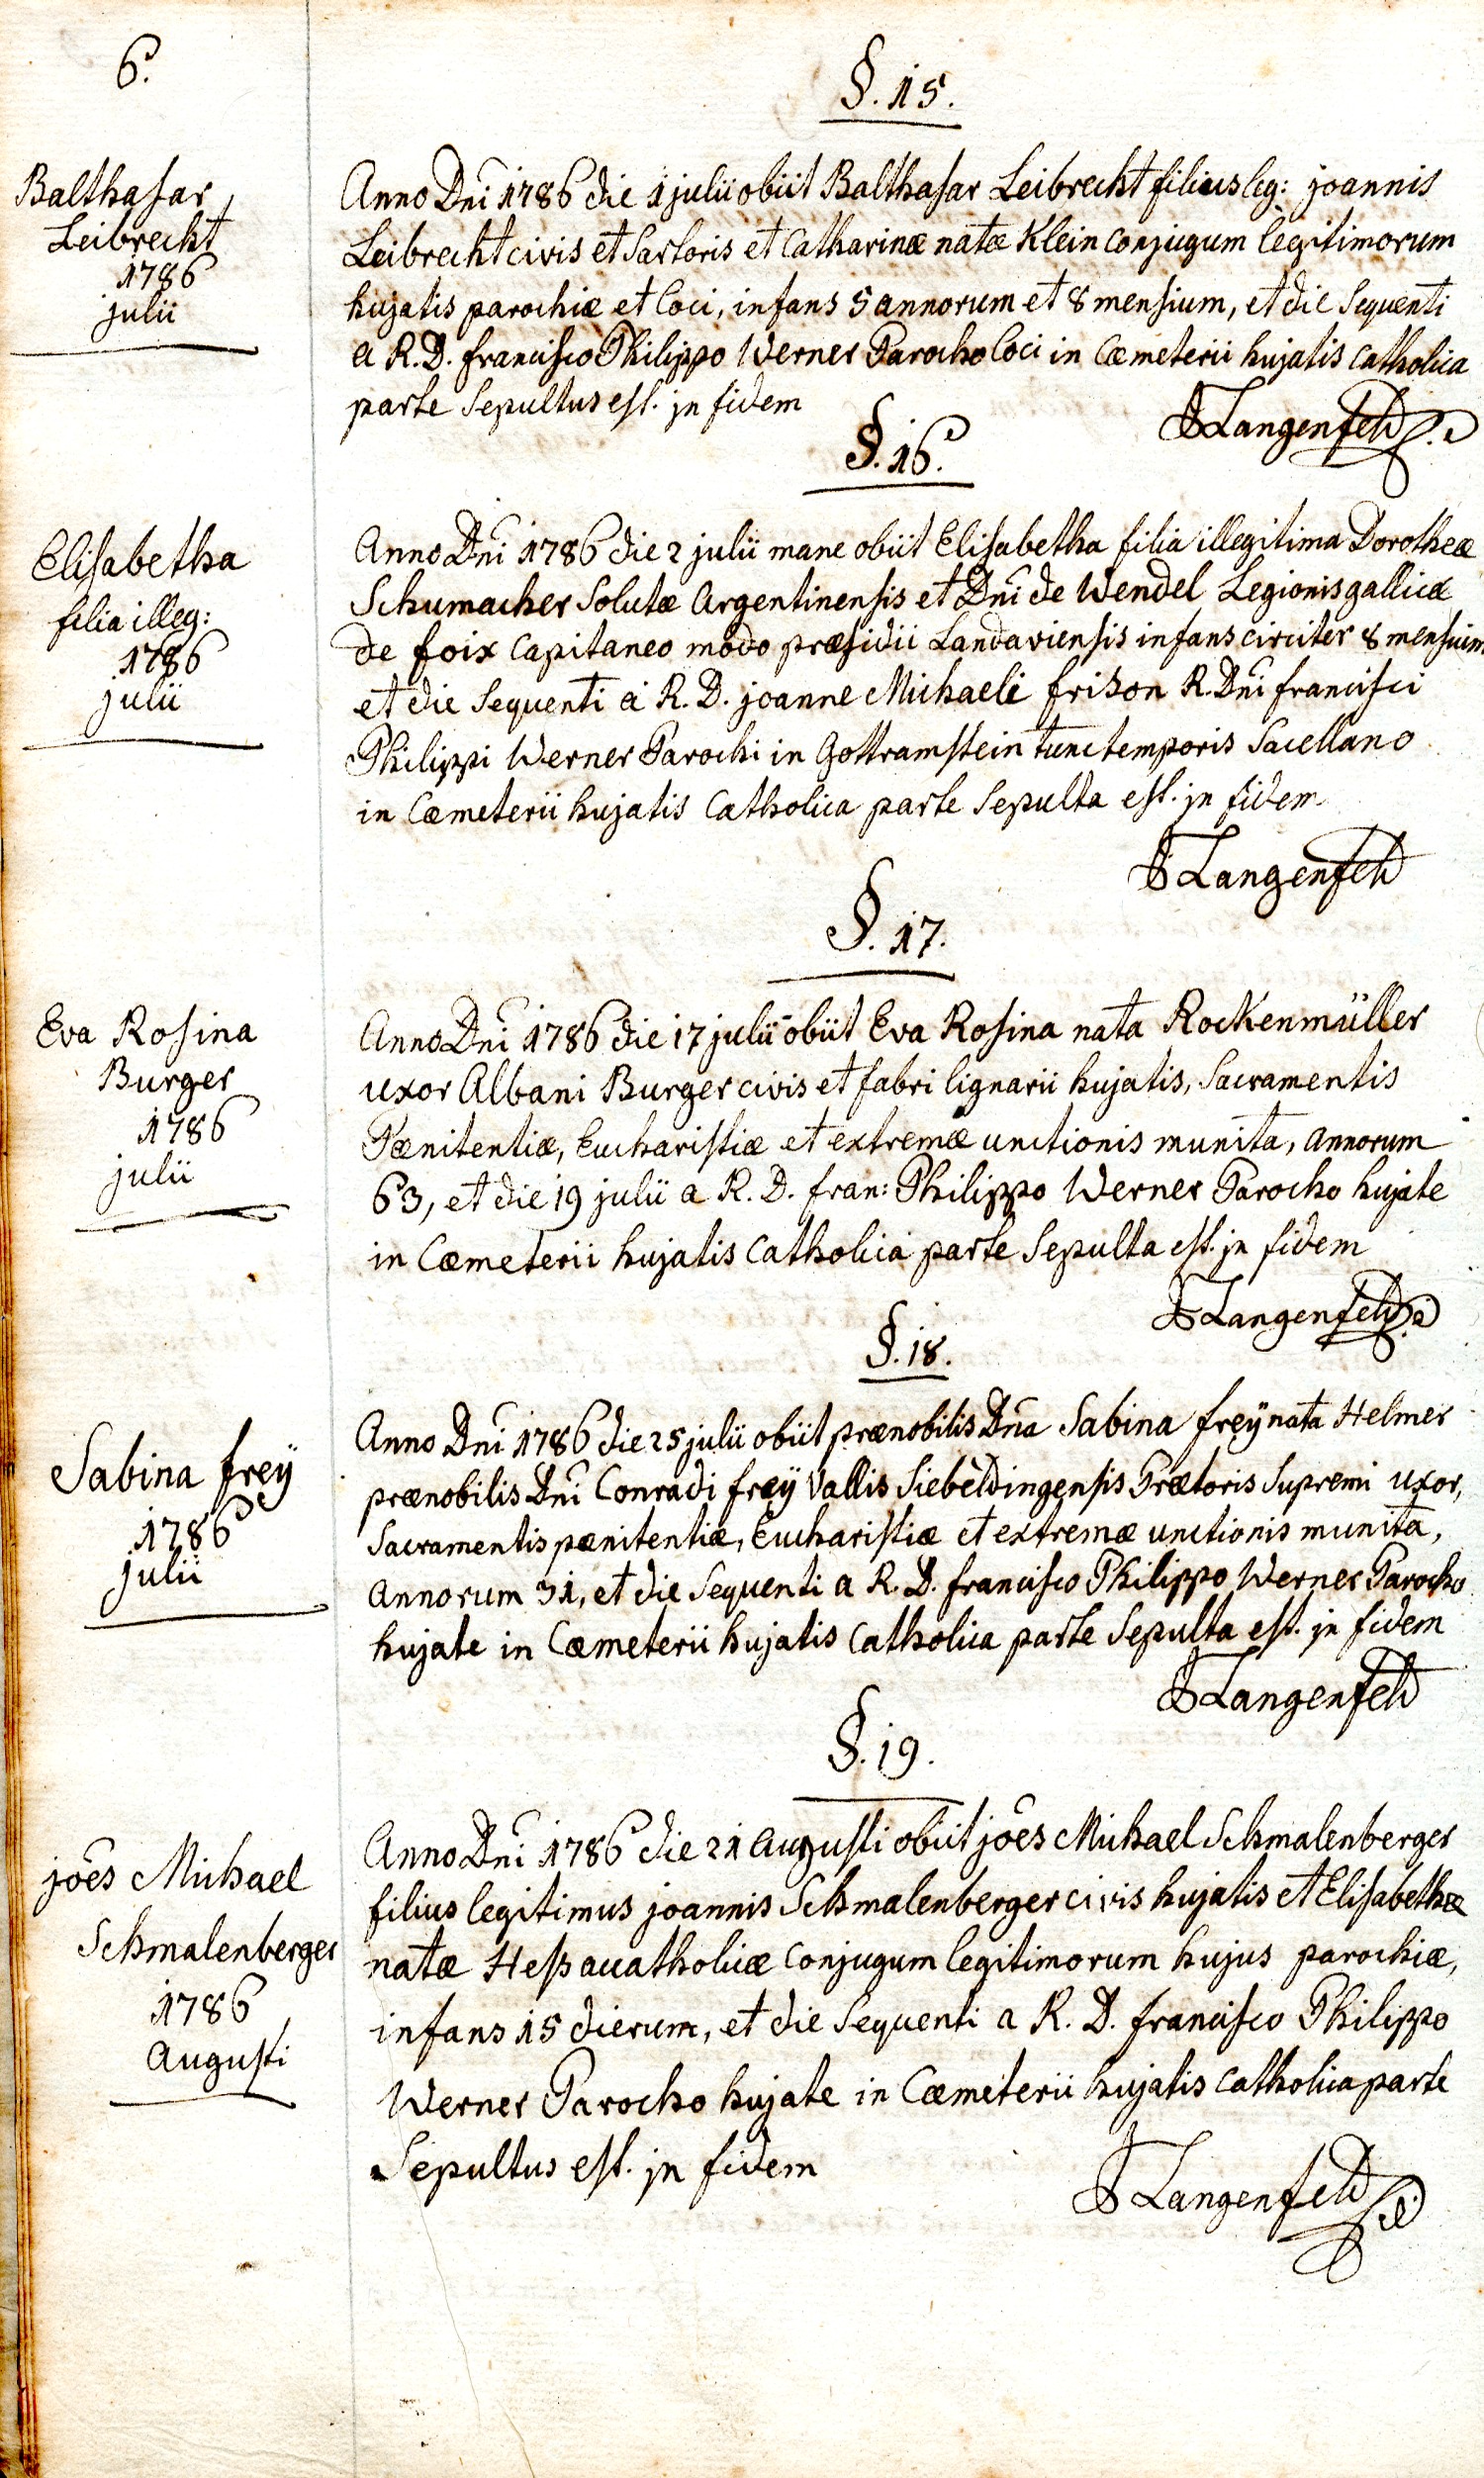 6.
§. 15.
Balthasar
Leibrecht
1786
julii
Anno Dni 1786 die 1 julii obiit Balthasar Leibrecht filius leg: joannis
Leibrecht civis et Sartoris et Catharinæ natæ Klein Conjugum legitimorum
hujatis parochiæ et loci, infans 5 annorum et 8 mensium, et die Sequenti
a R. D. francisco Philippo Werner Parocho loci in Cœmeterii hujatis Catholica
parte Sepultus est. jn fidem
Langenfeld
§. 16.
Elisabetha
filia illeg:
1786
julii
Anno Dni 1786 die 2 julii mane obiit Elisabetha filia illegitima Dorotheæ
Schumacher Solutæ Argentinensis et Dni de Wendel Legionis gallicæ
de foix Capitaneo modo præsidii Landaviensis infans circiter 8 mensium
et die Sequenti a R. D. joanne Michaele frison R. Dni francisci
Philippi Werner Parochi in Gottramstein tunc temporis Sacellano
in Cœmeterii hujatis Catholica parte Sepulta est. jn fidem
Langenfeld
§. 17.
Eva Rosina
Burger
1786
julii
Anno Dni 1786 die 17 julii obiit Eva Rosina nata Rockenmüller
uxor Albani Burger civis et fabri lignarii hujatis, Sacramentis
Pœnitentiæ, Eucharistiæ et extremæ unctionis munita, annorum
63, et die 19 julii a R. D. fran: Philippo Werner Parocho hujate
in Cœmeterii hujatis Catholica parte Sepulta est. jn fidem
Langenfeld
§. 18.
Sabina freÿ
1786
julii
Anno Dni 1786 die 25 julii obiit prænobilis Dna Sabina freÿ nata Helmer
prænobilis Dni Conradi freÿ Vallis Siebeldingensis Prætoris Supremi uxor,
Sacramentis pœnitentiæ, Eucharistiæ et extremæ unctionis munita,
annorum 31, et die Sequenti a R. D. francisco Philippo Werner Parocho
hujate in Cœmeterii hujatis Catholica parte Sepulta est. jn fidem
Langenfeld
§. 19.
jôes Michael
Schmalenberger
1786
Augusti
Anno Dni 1786 die 21 Augusti obiit jôes Michael Schmalenberger
filius legitimus joannis Schmalenberger civis hujatis et Elisabethæ
natæ Heß acatholicæ Conjugum legitimorum hujus parochiæ,
infans 15 dierum, et die Sequenti a R. D. francisco Philippo
Werner Parocho hujate in Cœmeterii hujatis Catholica parte
Sepultus est. jn fidem
Langenfeld